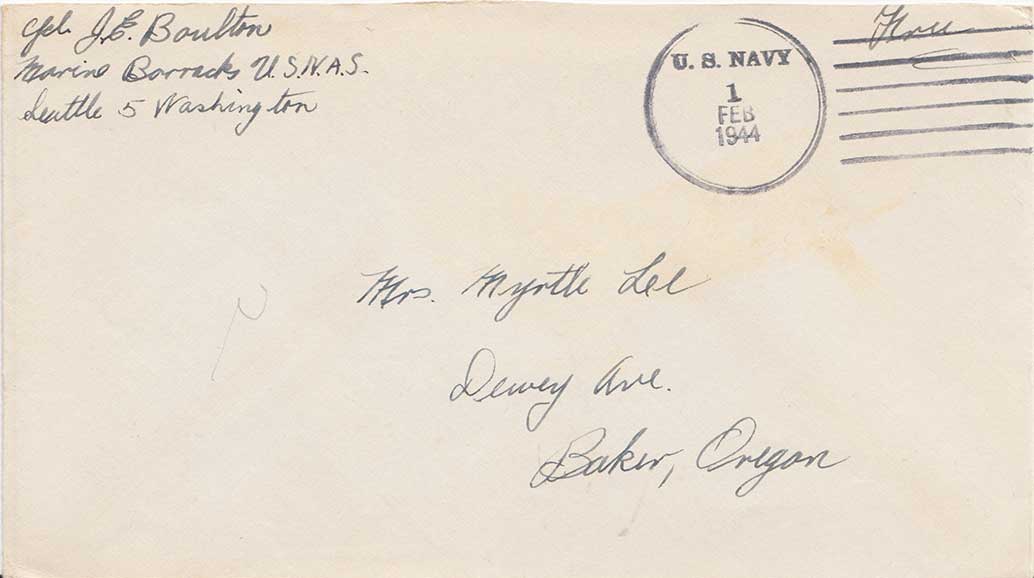 Cpl. J.E. Boulton
Marine Barracks U.S.N.A.S.
Seattle 5 Washington
Free
U. S. NAVY
1
FEB
1944
Mrs. Myrtle Lee
Dewey Ave.
Baker, Oregon